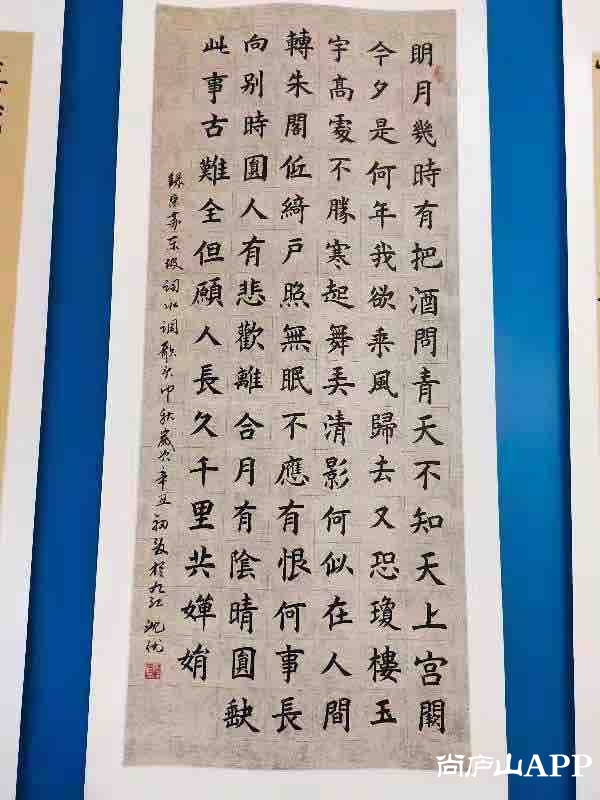 明月幾時有把酒問青天不知天上宮闕
今夕是何年我欲乘風歸去又恐瓊樓玉
宇高處不勝寒起舞弄清影何似在人間
轉朱閣低綺戶照無眠不應有恨何事長
向別時圓人有悲歡離合月有陰晴圓缺
此事古難全但願人長久千里共嬋娟
錄宋蘇東坡詞水調歌頭中秋歲次辛丑初夏於九江
尚庐山APP